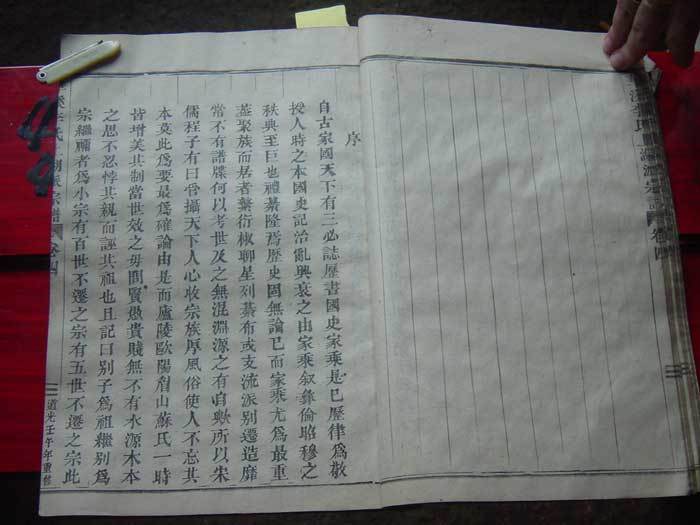 序
自古家國天下有三必誌歷書國史家乘是已歷律爲敬
授人時之本國史記治亂興衰之由家乘叙彝倫昭穆之
秩典至巨也禮綦隆焉歷史固無論已而家乘尤爲最重
蓋聚族而居者繁衍椒聊星列綦布或支流派別遷造靡
常不有譜牒何以考世及之無混淵源之有自歟所以朱
儒程子有曰管攝天下人心收宗族厚風俗使人不忘其
本莫此爲要最爲確論由是而廬陵歐陽眉山蘇氏一時
皆增美其制當世效之毋間賢愚貴賤無不有水源木本
之思不忍悖其親而誣其祖也且記曰別子爲祖繼別爲
宗繼禰者爲小宗有百世不遷之宗有五世不遷之宗此
李氏 宗譜 卷四
道光壬午年重修